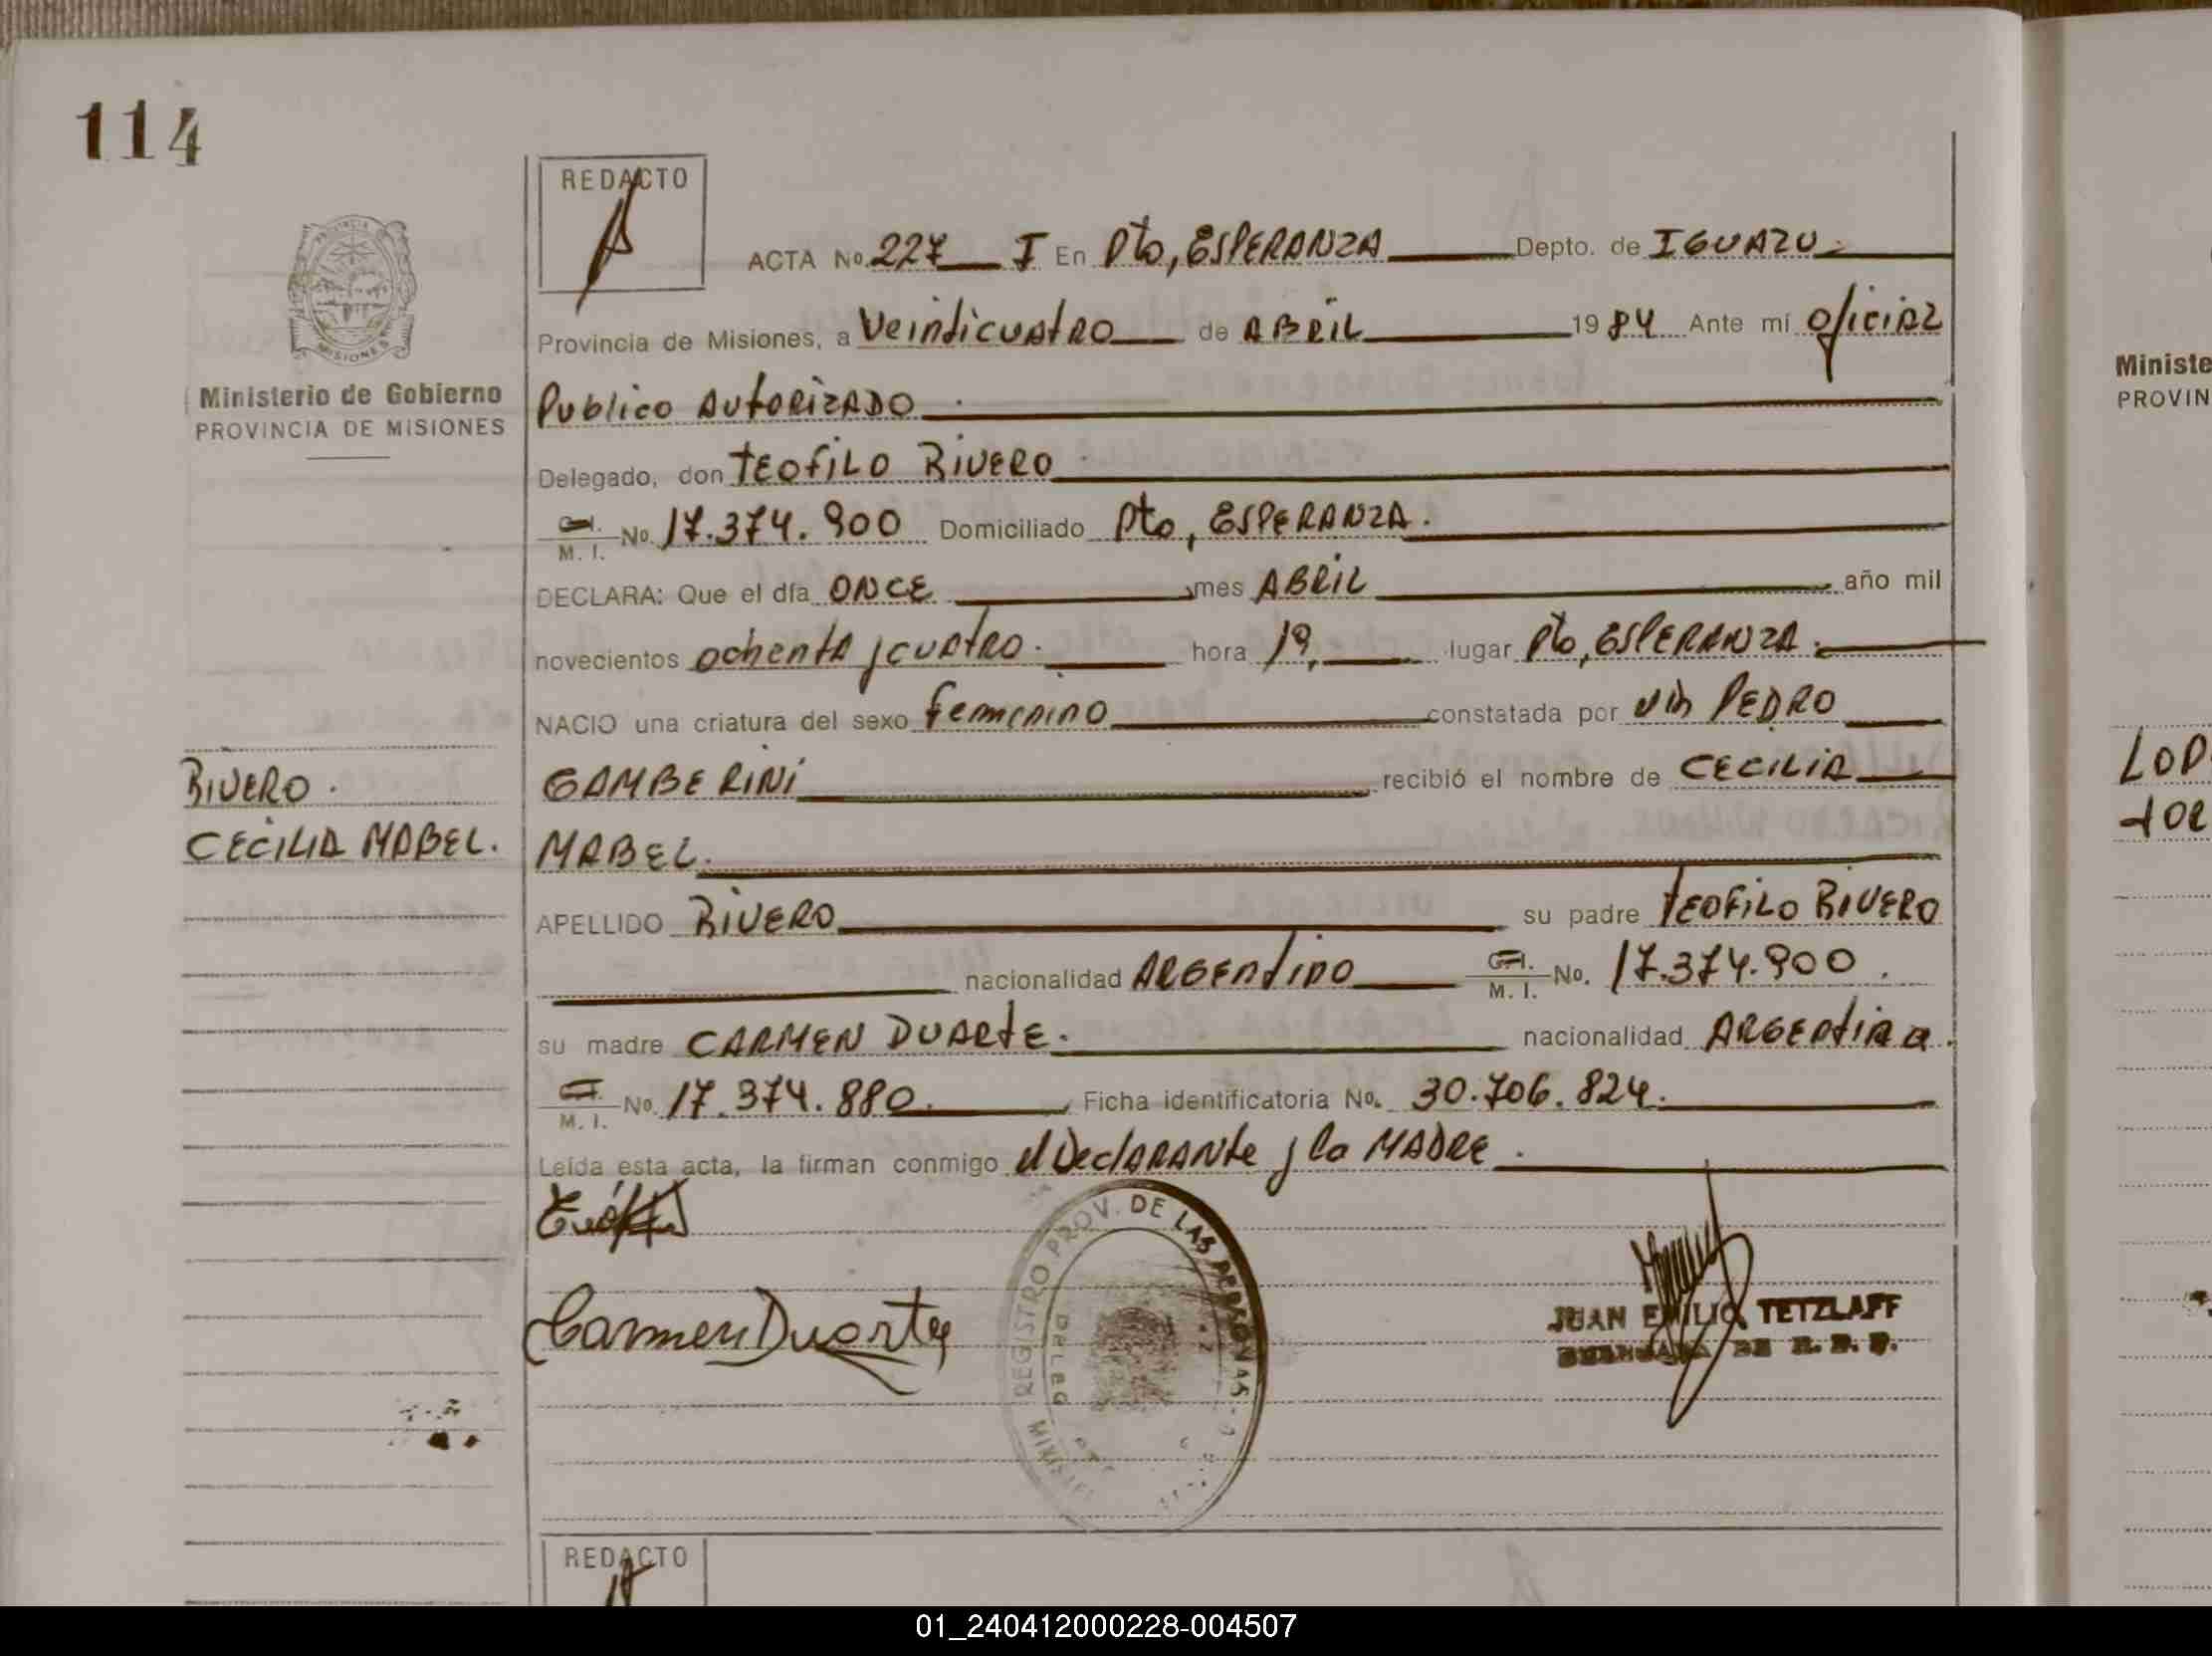 114
REDACTO
ACTA No. 227 I En Pto, ESPERANZA Depto. de IGUAZU.
Provincia de Misiones, a Veinticuatro de ABRIL 1984 Ante mí oficial
Ministerio de Gobierno
PROVINCIA DE MISIONES
Publico AutoRizADO
Delegado, don TEOFILO RIVERO
C. I. M. I. No. 17.374.900 Domiciliado Pto, ESPERANZA.
DECLARA: Que el día ONCE mes ABRIL año mil
novecientos ochenta y cuatro. hora 19, lugar Pto, ESPERANZA.
NACIO una criatura del sexo femenino constatada por PEDRO
RIVERO.
CECILIA MABEL.
GAMBERINI recibió el nombre de CECILIA
MABEL.
APELLIDO RIVERO su padre TEOFILO RIVERO
nacionalidad ARGENTINO C. I. M. I. No. 17.374.900.
su madre CARMEN DUARTE. nacionalidad ARGENTINA.
C. I. M. I. No. 17.374.880. Ficha identificatoria No. 30.706.824.
Leída esta acta, la firman conmigo el DeclARANte y la MADRE.
Carmen Duarte
REGISTRO PROV. DE LAS PERSONAS
JUAN EMILIO TETZLAFF
REDACTO
Ministe
PROVIN
01_240412000228-004507